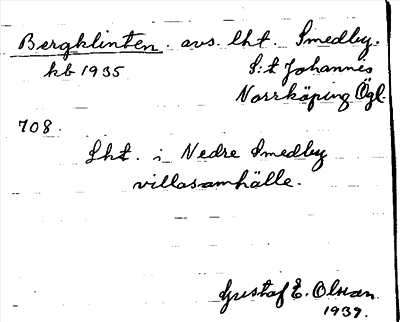 Bergklinten. avs. lht. Smedby.
kb 1935 S:t Johannes
Norrköping Ögl.
708.
Lht. i Nedre Smedby
villasamhälle.
Gustaf E. Olson
1937.